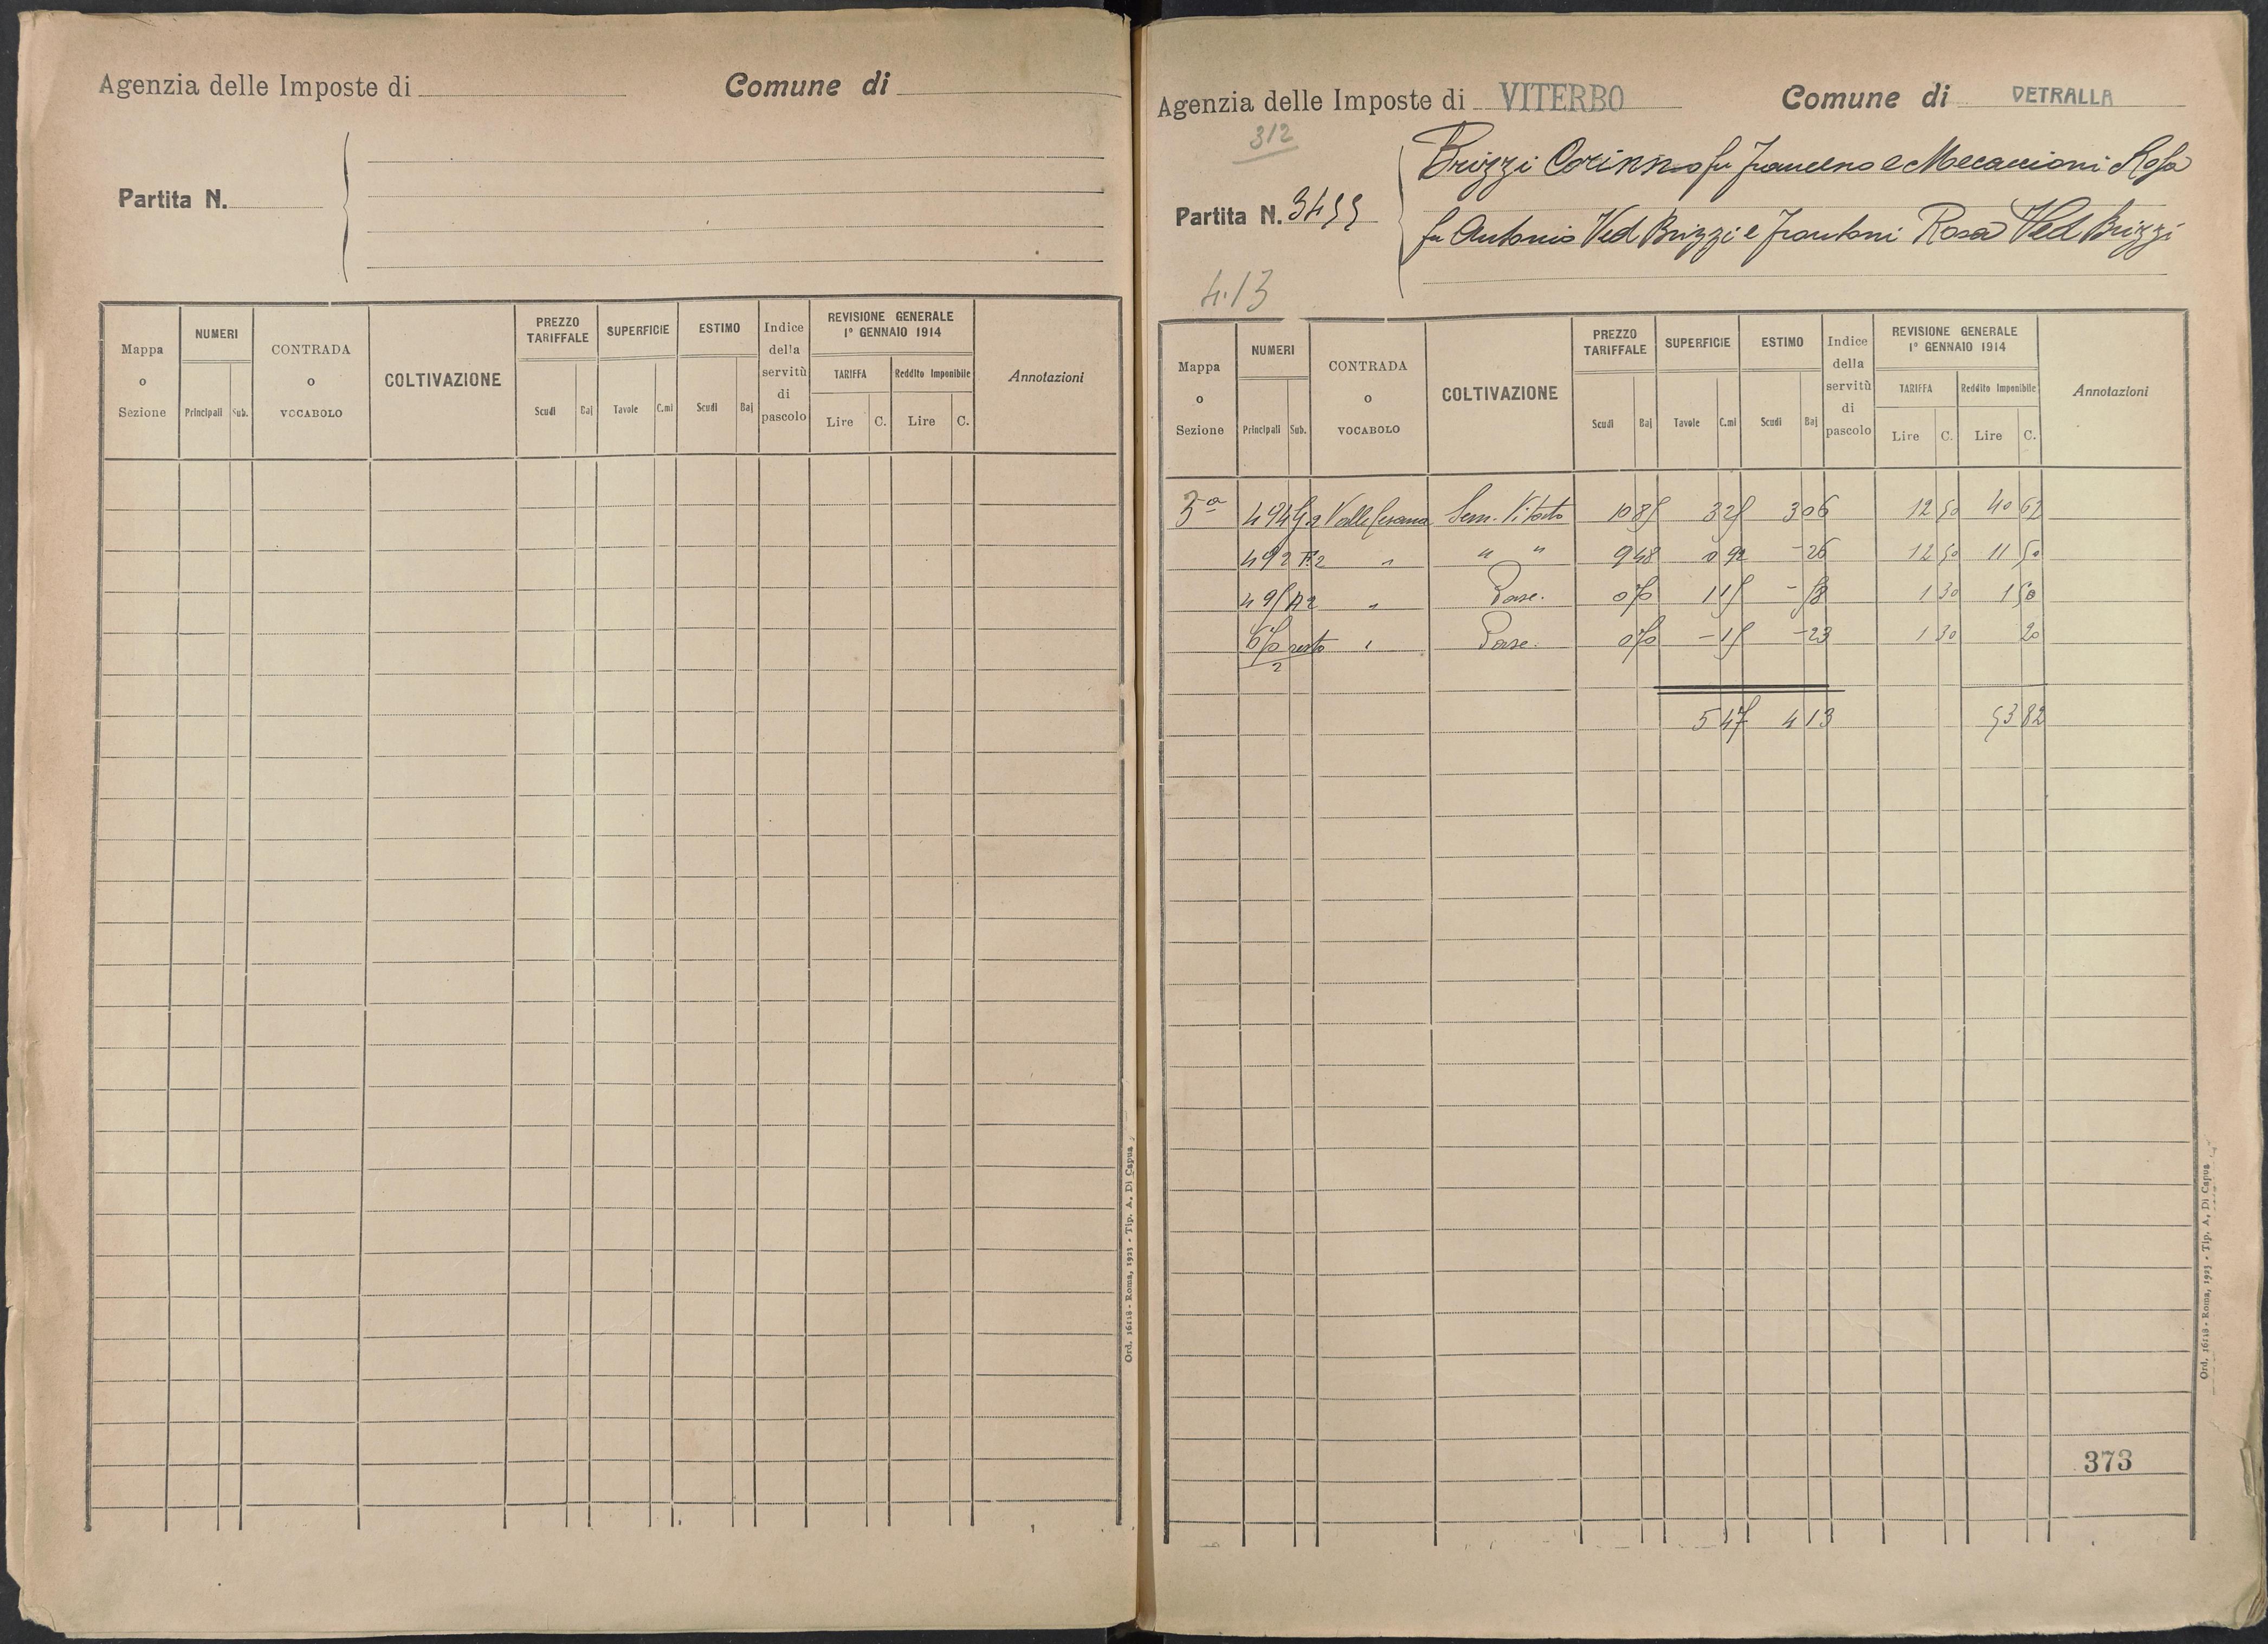 Agenzia delle Imposte di
Comune di
Partita N.
Mappa o Sezione
NUMERI
Principali Sub.
CONTRADA o VOCABOLO
COLTIVAZIONE
PREZZO TARIFFALE
Scudi Baj
SUPERFICIE
Tavole C.mi
ESTIMO
Scudi Baj
Indice della servitù di pascolo
REVISIONE GENERALE
1° GENNAIO 1914
TARIFFA
Lire C.
Reddito Imponibile
Lire C.
Annotazioni
Ord. 16118 - Roma, 1923 - Tip. A. Di Capua
Agenzia delle Imposte di VITERBO
Comune di VETRALLA
312
Partita N. 3455
Brizzi Corinno fu Francesco e Mecarcioni Rosa
fu Antonio Ved Brizzi e Frontoni Rosa Ved Brizzi
4.13
Mappa o Sezione
NUMERI
Principali Sub.
CONTRADA o VOCABOLO
COLTIVAZIONE
PREZZO TARIFFALE
Scudi Baj
SUPERFICIE
Tavole C.mi
ESTIMO
Scudi Baj
Indice della servitù di pascolo
REVISIONE GENERALE
1° GENNAIO 1914
TARIFFA
Lire C.
Reddito Imponibile
Lire C.
Annotazioni
3a 494 Valle Cesana Sem. Vitato 1085 325 306 12 50 40 62
492 F2 " " " 948 0 92 - 26 12 50 11 50
495 A2 " Pasc. 0 70 1 15 - 58 1 30 1 50
670 resto 2 " Pasc. 0 70 - 15 - 23 1 30 20
5 47 4 13 53 82
373
Ord. 16118 - Roma, 1923 - Tip. A. Di Capua